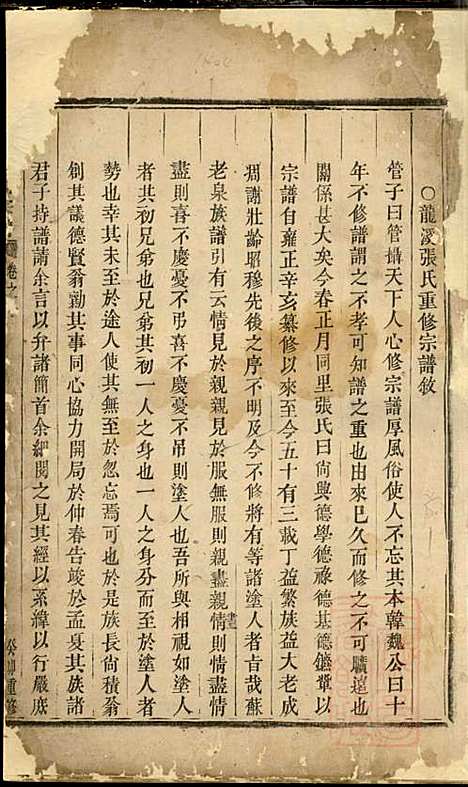 ○龍溪張氏重修宗譜敘
管子曰管攝天下人心修宗譜厚風俗使人不忘其本韓魏公曰十
年不修譜謂之不孝可知譜之重也由來已久而修之不可驣遠也
關係甚大矣今春正月同里張氏曰尚與德學德祿德基德鑣輩以
宗譜自雍正辛亥纂修以來至今五十有三載丁益繁族益大老成
凋謝壯齡昭穆先後之序不明及今不修將有等諸塗人者旨哉蘇
老泉族譜引有云情見於親親見於服無服則親盡親盡則情盡情
盡則喜不慶憂不弔喜不慶憂不吊則塗人也吾所與相視如塗人
者其初兄弟也兄弟其初一人之身也一人之身分而至於塗人者
勢也幸其未至於途人使其無至於忽忘焉可也於是族長尚積翁
創其議德賢翁勷其事同心協力開局於仲春告竣於孟夏其族諸
君子持譜請余言以弁諸簡首余細閱之見其經以系緯以行嚴底
卷之
癸卯重修